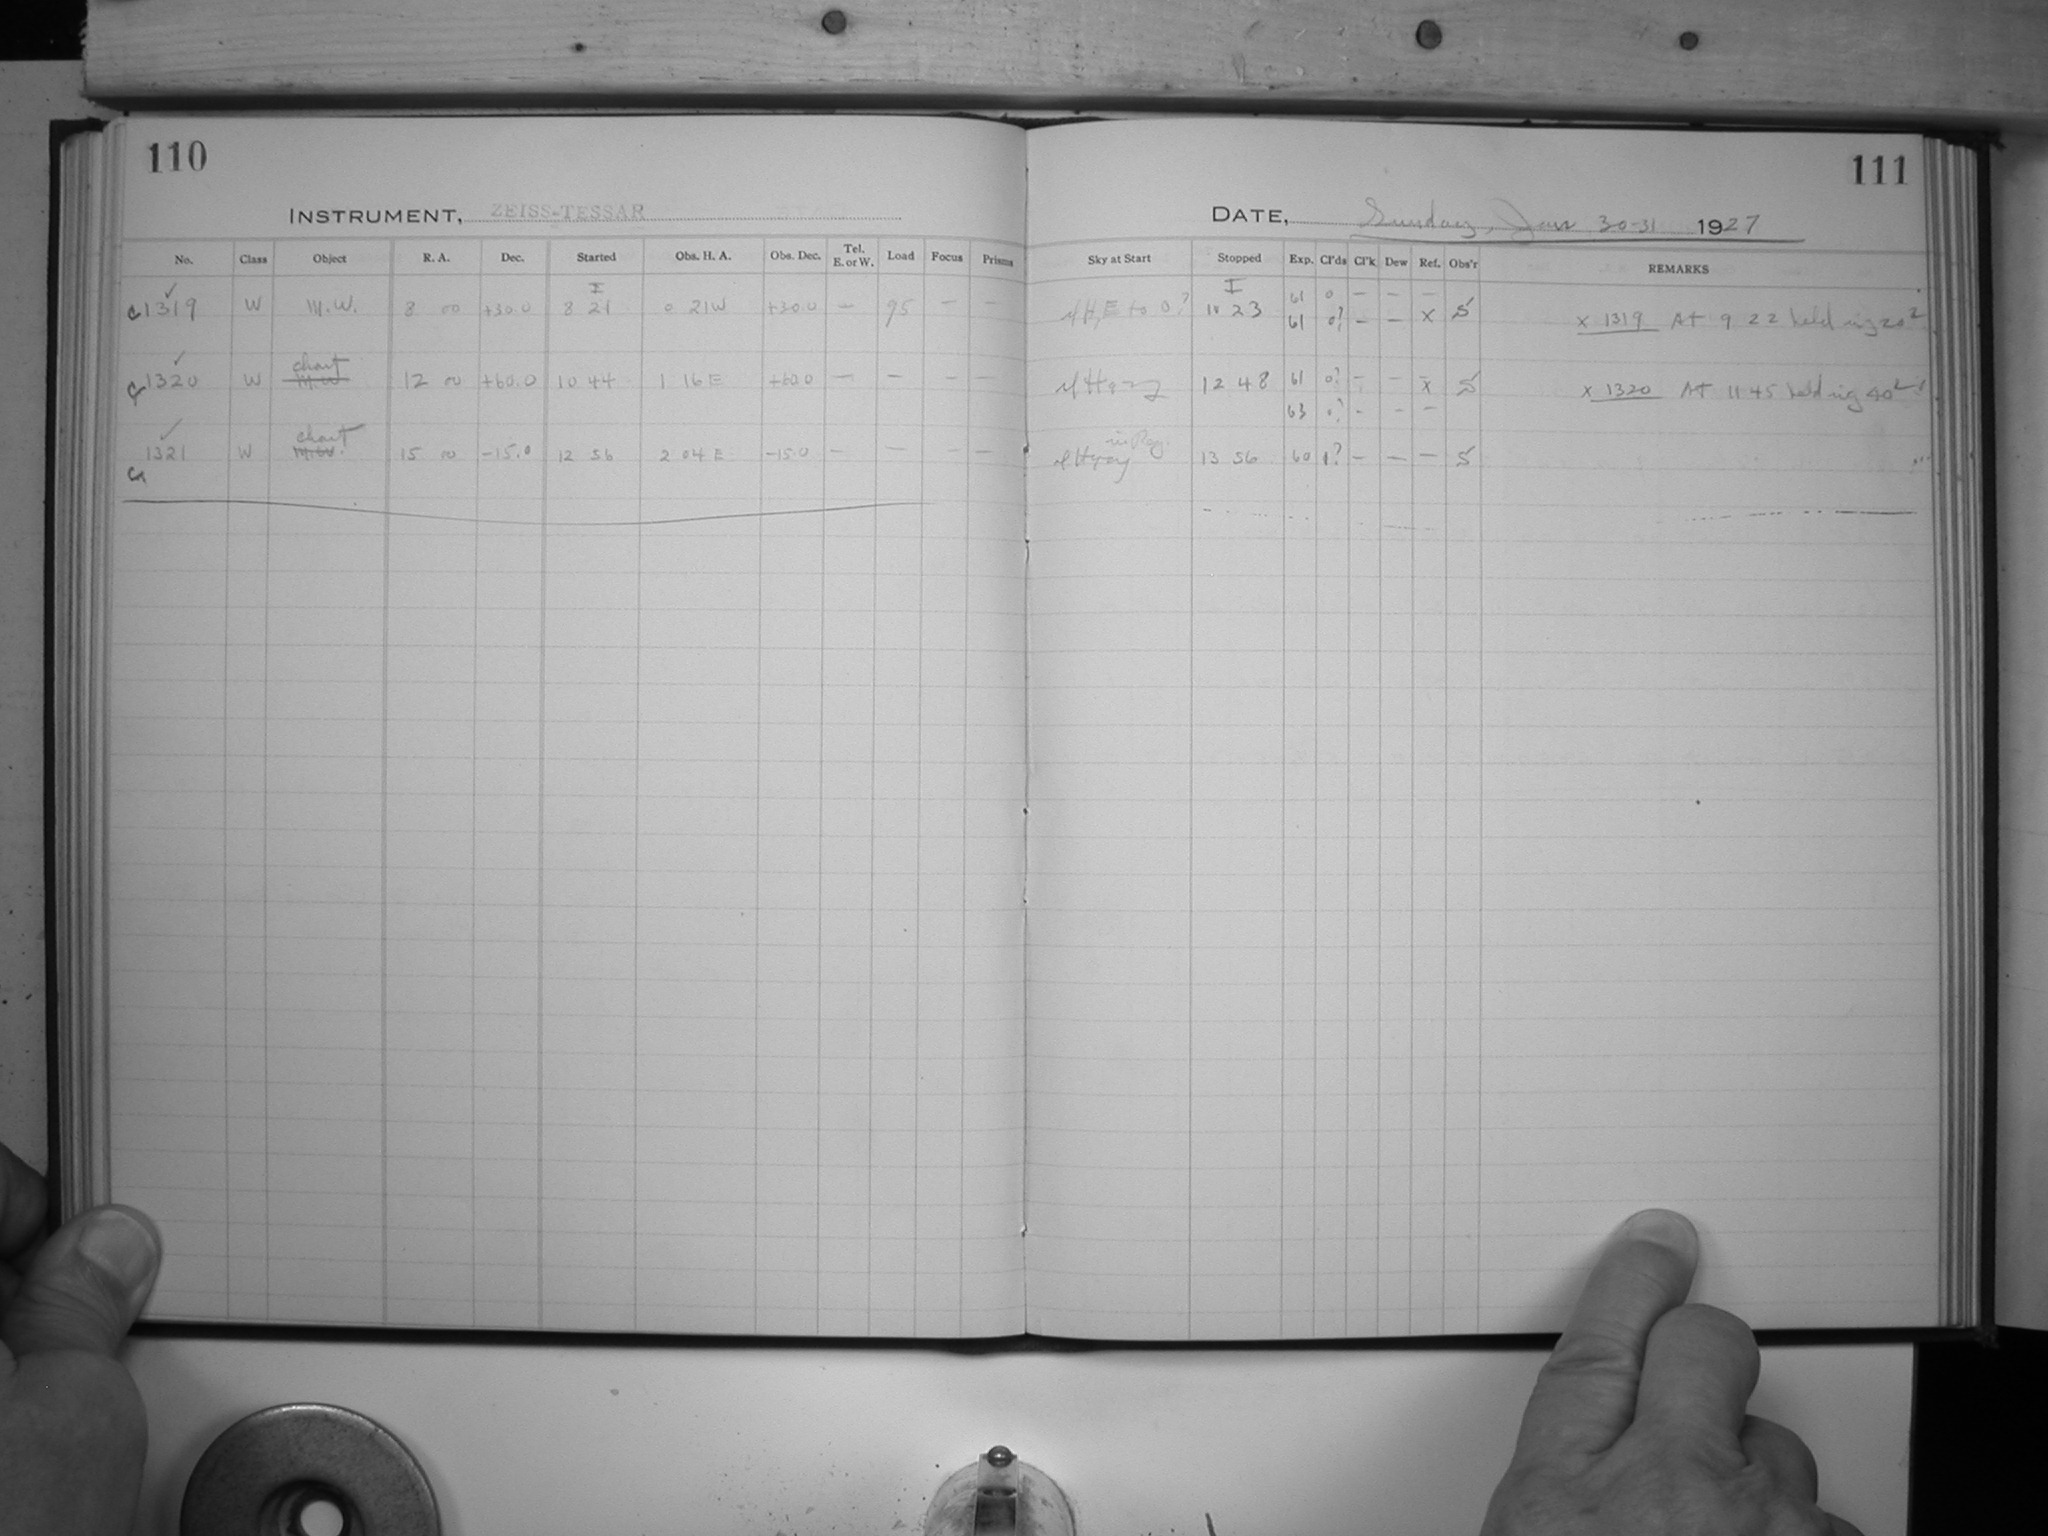 110
INSTRUMENT, ZEISS-TESSAR
No. Class Object R. A. Dec. Started Obs. H. A. Obs. Dec. Tel. E. or W. Load Focus Prisms
I
C 1319 ✓ W M.W. 8 00 +30.0 8 21 0 21W +30.0 — 95 — —
chart
C 1320 ✓ W M.W. 12 00 +60.0 10 44 1 16 E +60.0 — — — —
chart
C 1321 ✓ W M.W. 15 00 -15.0 12 56 2 04 E -15.0 — — — —
111
DATE, Sunday, Jan 30-31 1927
Sky at Start Stopped Exp. Cl'ds Cl'k Dew Ref. Obs'r REMARKS
I
61 0 — — —
E to 0? 10 23 61 0? — — x S x 1319 At 9 22 held ing 20
12 48 61 0? — — x S x 1320 At 11 45 held ing 40
63 0? — — —
13 56 60 1? — — — S